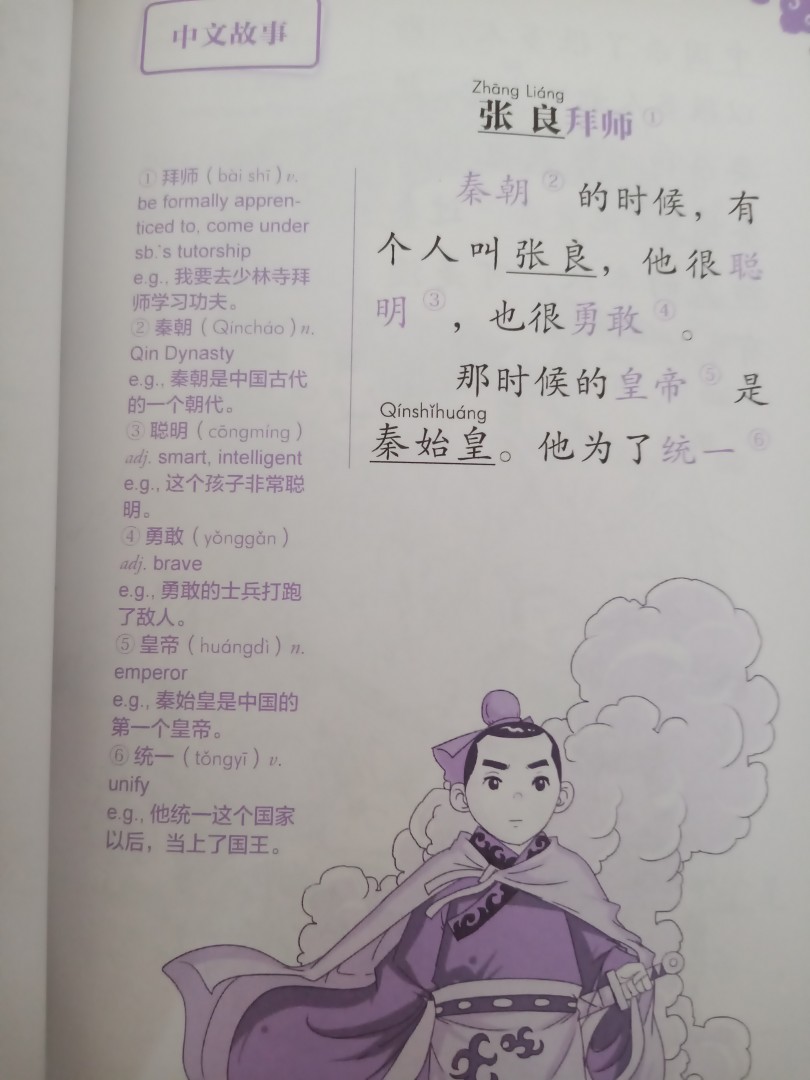 中文故事
Zhāng Liáng
张良拜师①
①拜师（bài shī）v.
be formally appren-
ticed to, come under
sb.'s tutorship
e.g., 我要去少林寺拜
师学习功夫。
②秦朝（Qíncháo）n.
Qin Dynasty
e.g., 秦朝是中国古代
的一个朝代。
③聪明（cōngmíng）
adj. smart, intelligent
e.g., 这个孩子非常聪
明。
④勇敢（yǒnggǎn）
adj. brave
e.g., 勇敢的士兵打跑
了敌人。
⑤皇帝（huángdì）n.
emperor
e.g., 秦始皇是中国的
第一个皇帝。
⑥统一（tǒngyī）v.
unify
e.g., 他统一这个国家
以后，当上了国王。
秦朝②的时候，有
个人叫张良，他很聪
明③，也很勇敢④。
那时候的皇帝⑤是
Qínshǐhuáng
秦始皇。他为了统一⑥